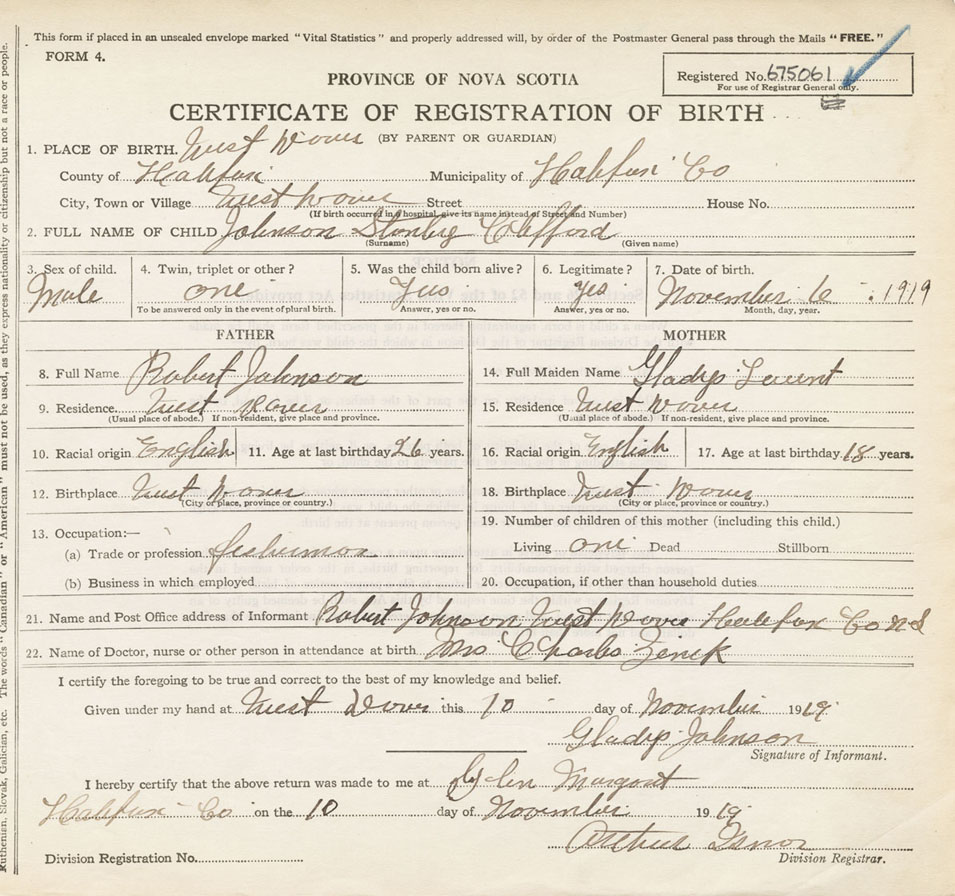 This form if placed in an unsealed envelope marked "Vital Statistics" and properly addressed will, by order of the Postmaster General pass through the Mails "FREE."
FORM 4.
PROVINCE OF NOVA SCOTIA
Registered No. 675061
For use of Registrar General only.
CERTIFICATE OF REGISTRATION OF BIRTH
(BY PARENT OR GUARDIAN)
1. PLACE OF BIRTH. West Dover
County of Halifax Municipality of Halifax Co
City, Town or Village West Dover Street House No.
(If birth occurred in a hospital, give its name instead of Street and Number)
2. FULL NAME OF CHILD Johnson Stanley Clifford
(Surname) (Given name)
3. Sex of child. 4. Twin, triplet or other? 5. Was the child born alive? 6. Legitimate? 7. Date of birth.
Male one Yes yes November 6 1919
To be answered only in the event of plural birth. Answer, yes or no. Answer, yes or no. Month, day, year.
FATHER MOTHER
8. Full Name Robert Johnson 14. Full Maiden Name Gladys
9. Residence West Dover 15. Residence West Dover
(Usual place of abode.) If non-resident, give place and province. (Usual place of abode.) If non-resident, give place and province.
10. Racial origin English 11. Age at last birthday 26 years. 16. Racial origin English 17. Age at last birthday 18 years.
12. Birthplace West Dover 18. Birthplace West Dover
(City or place, province or country.) (City or place, province or country.)
13. Occupation:— 19. Number of children of this mother (including this child.)
(a) Trade or profession fisherman Living one Dead Stillborn
(b) Business in which employed 20. Occupation, if other than household duties
21. Name and Post Office address of Informant Robert Johnson West Dover Halifax Co
22. Name of Doctor, nurse or other person in attendance at birth Mrs Charles Zinck
I certify the foregoing to be true and correct to the best of my knowledge and belief.
Given under my hand at West Dover this 10 day of November 1919
Gladys Johnson
Signature of Informant.
I hereby certify that the above return was made to me at Margaret
Halifax Co on the 10 day of November 1919
Arthur
Division Registration No. Division Registrar.
Ruthenian, Slovak, Galician, etc. The words "Canadian" or "American" must not be used, as they express nationality or citizenship but not a race or people.